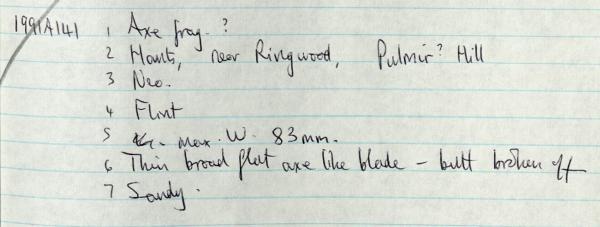 1991A141 1 Axe frag. ?
2 Hants, near Ringwood, Pulmir? Hill
3 Neo.
4 Flint
5 max. W. 83mm.
6 Thin broad flat axe like blade – butt broken off
7 Sandy.